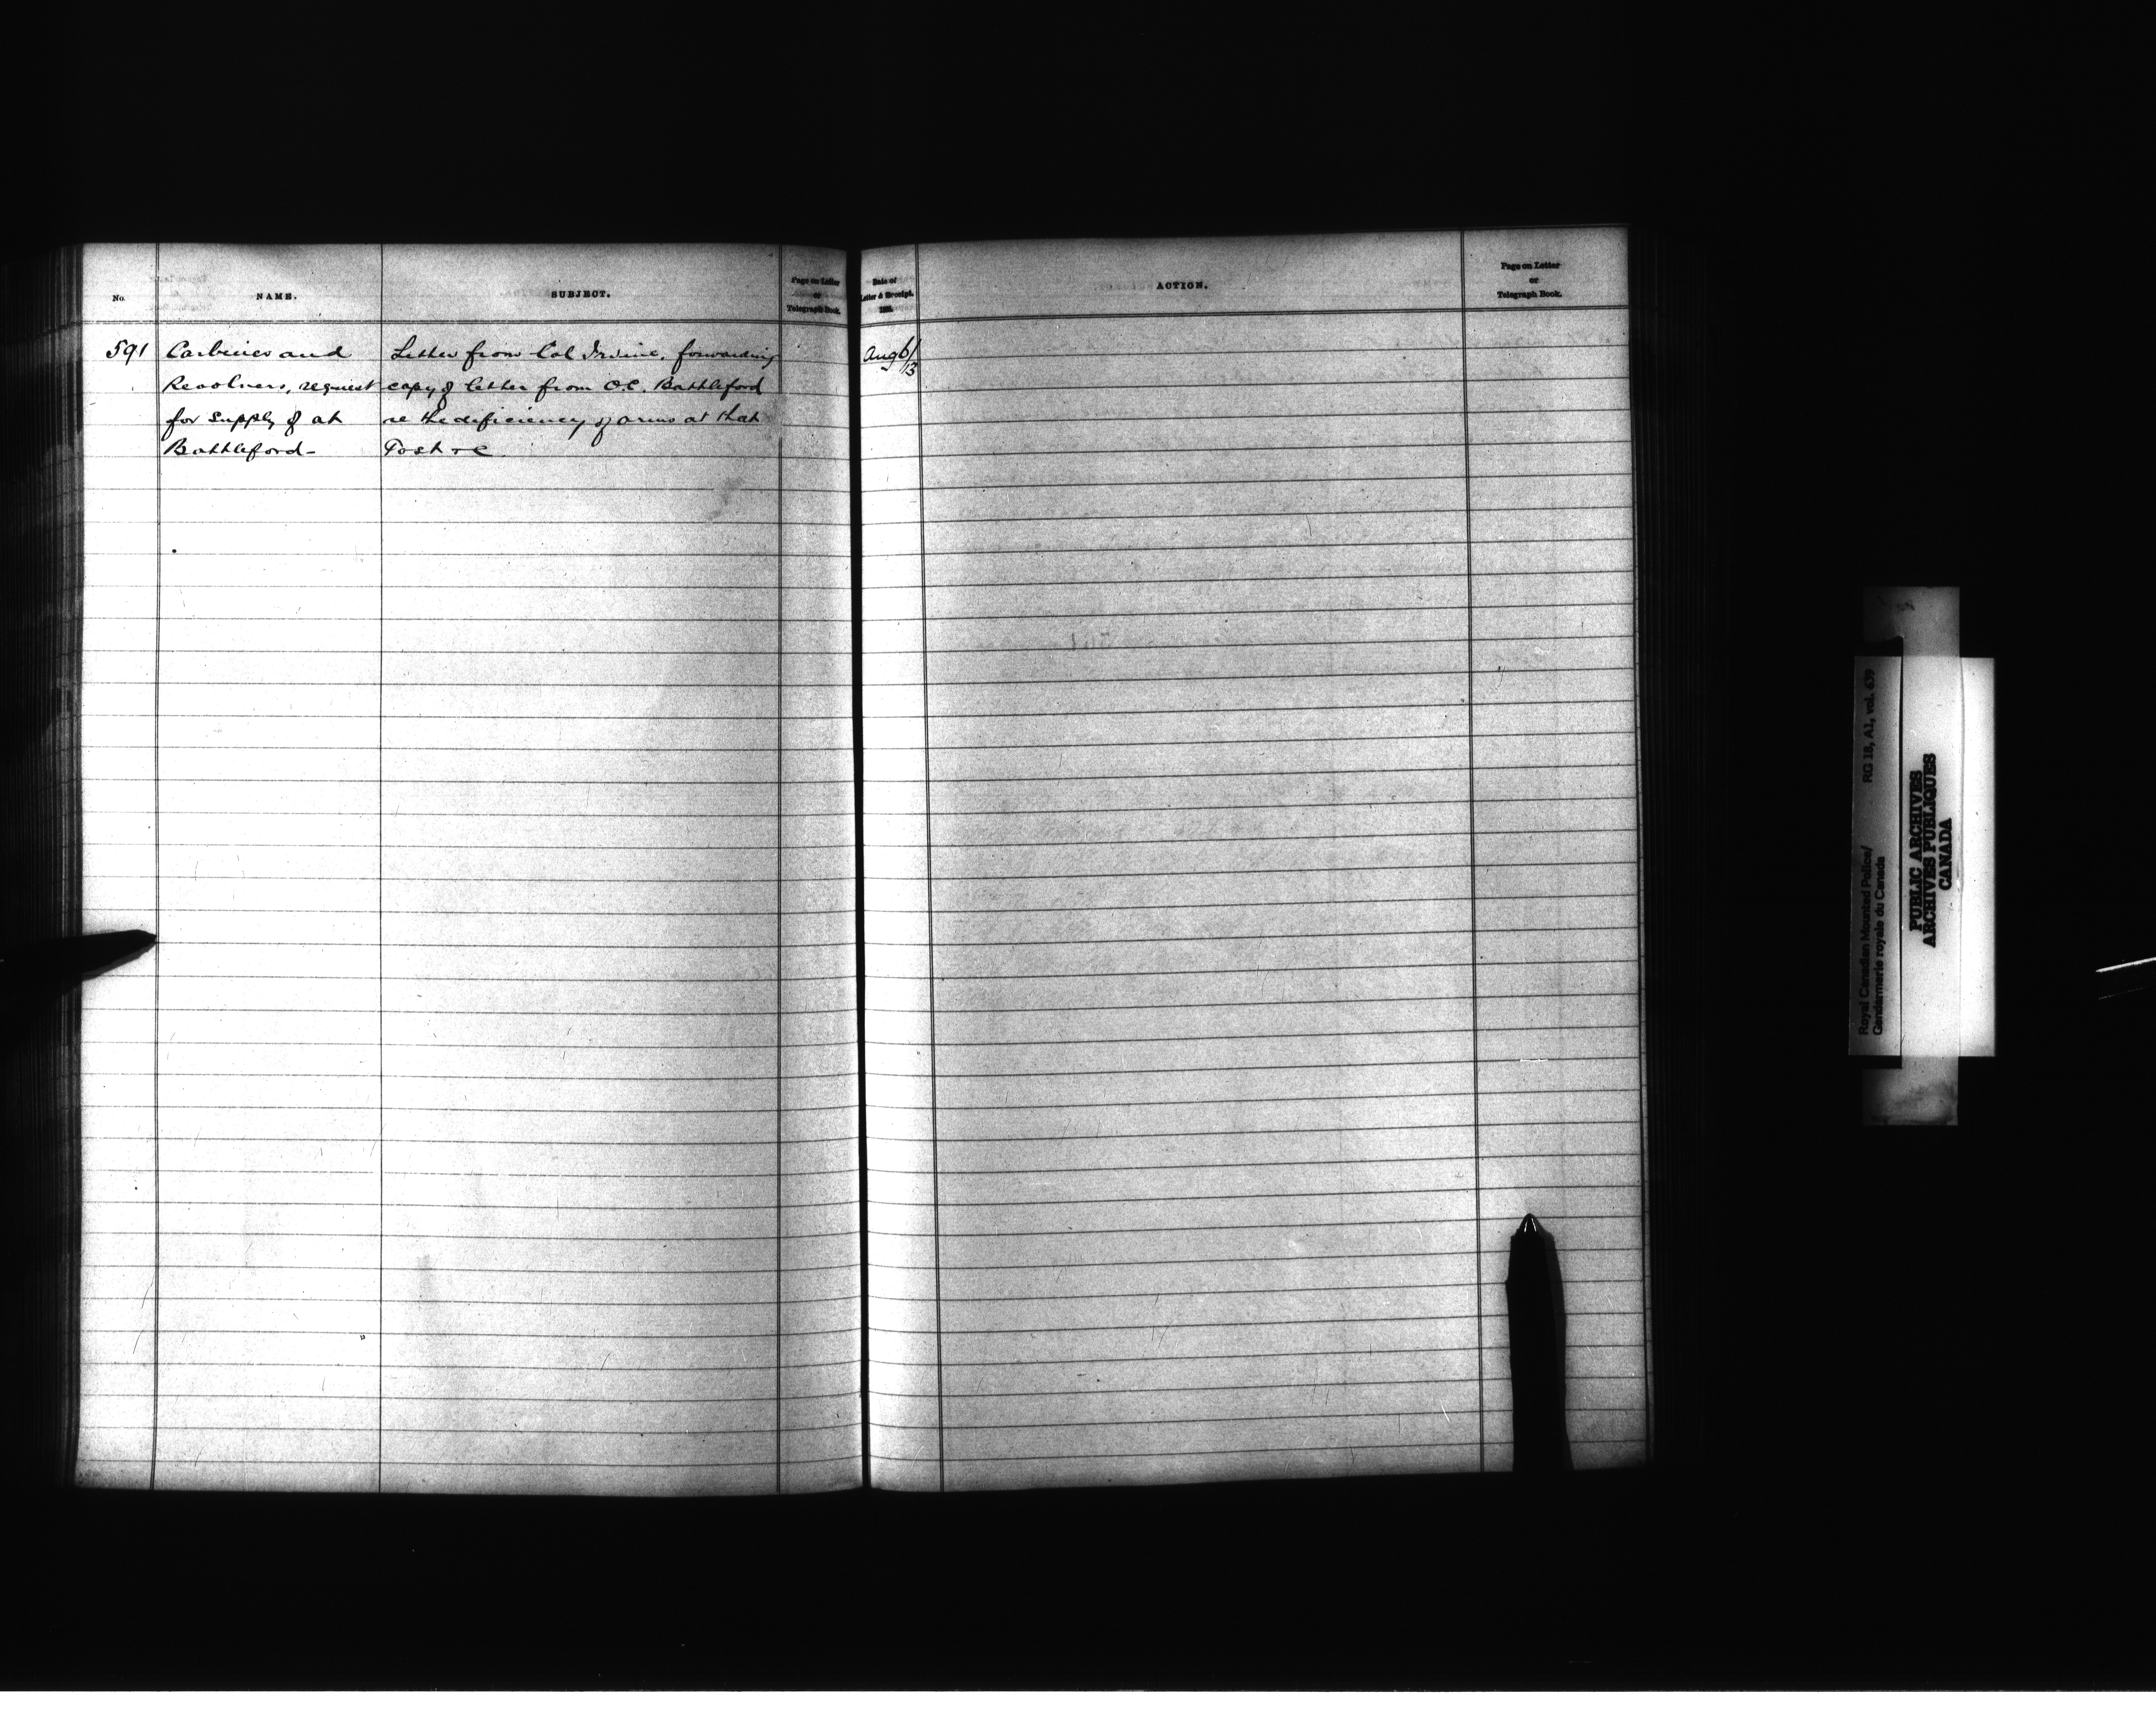 No.
NAME.
SUBJECT.
Page on Letter
or
Telegraph Book.
Date of
Letter & Receipt.
188
ACTION.
Page on Letter
or
Telegraph Book.
591
Carbines and
Revolvers, request
for supply of at
Battleford-
Letter from Col Irvine, forwarding
copy of letter from O.C. Battleford
re the deficiency of arms at that
Post &c
Aug 6/
13
Royal Canadian Mounted Police/ RG 18, A1, vol. 639
Gendarmerie royale du Canada
PUBLIC ARCHIVES
ARCHIVES PUBLIQUES
CANADA